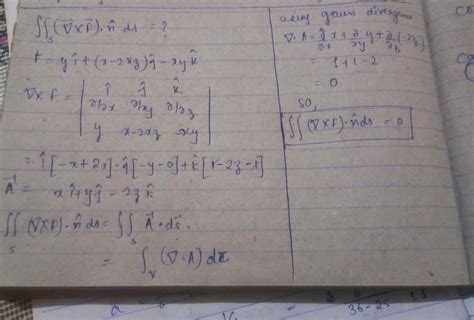 ∬_S (∇×F)·n̂ ds = ?
F = y î + (x-2xz) ĵ - xy k̂
∇×F = | î ĵ k̂ |
| ∂/∂x ∂/∂y ∂/∂z |
| y x-2xz xy |
= î[-x+2x] - ĵ[-y-0] + k̂[1-2z-1]
A⃗ = x î + y ĵ - 2z k̂
∬_S (∇×F)·n̂ ds = ∬_S A⃗·ds⃗.
= ∫_V (∇·A) dτ
using gauss divergence
∇·A = ∂/∂x x + ∂/∂y y + ∂/∂z (-2z)
= 1+1-2
= 0
so,
∬(∇×F)·n̂ ds = 0
36-25